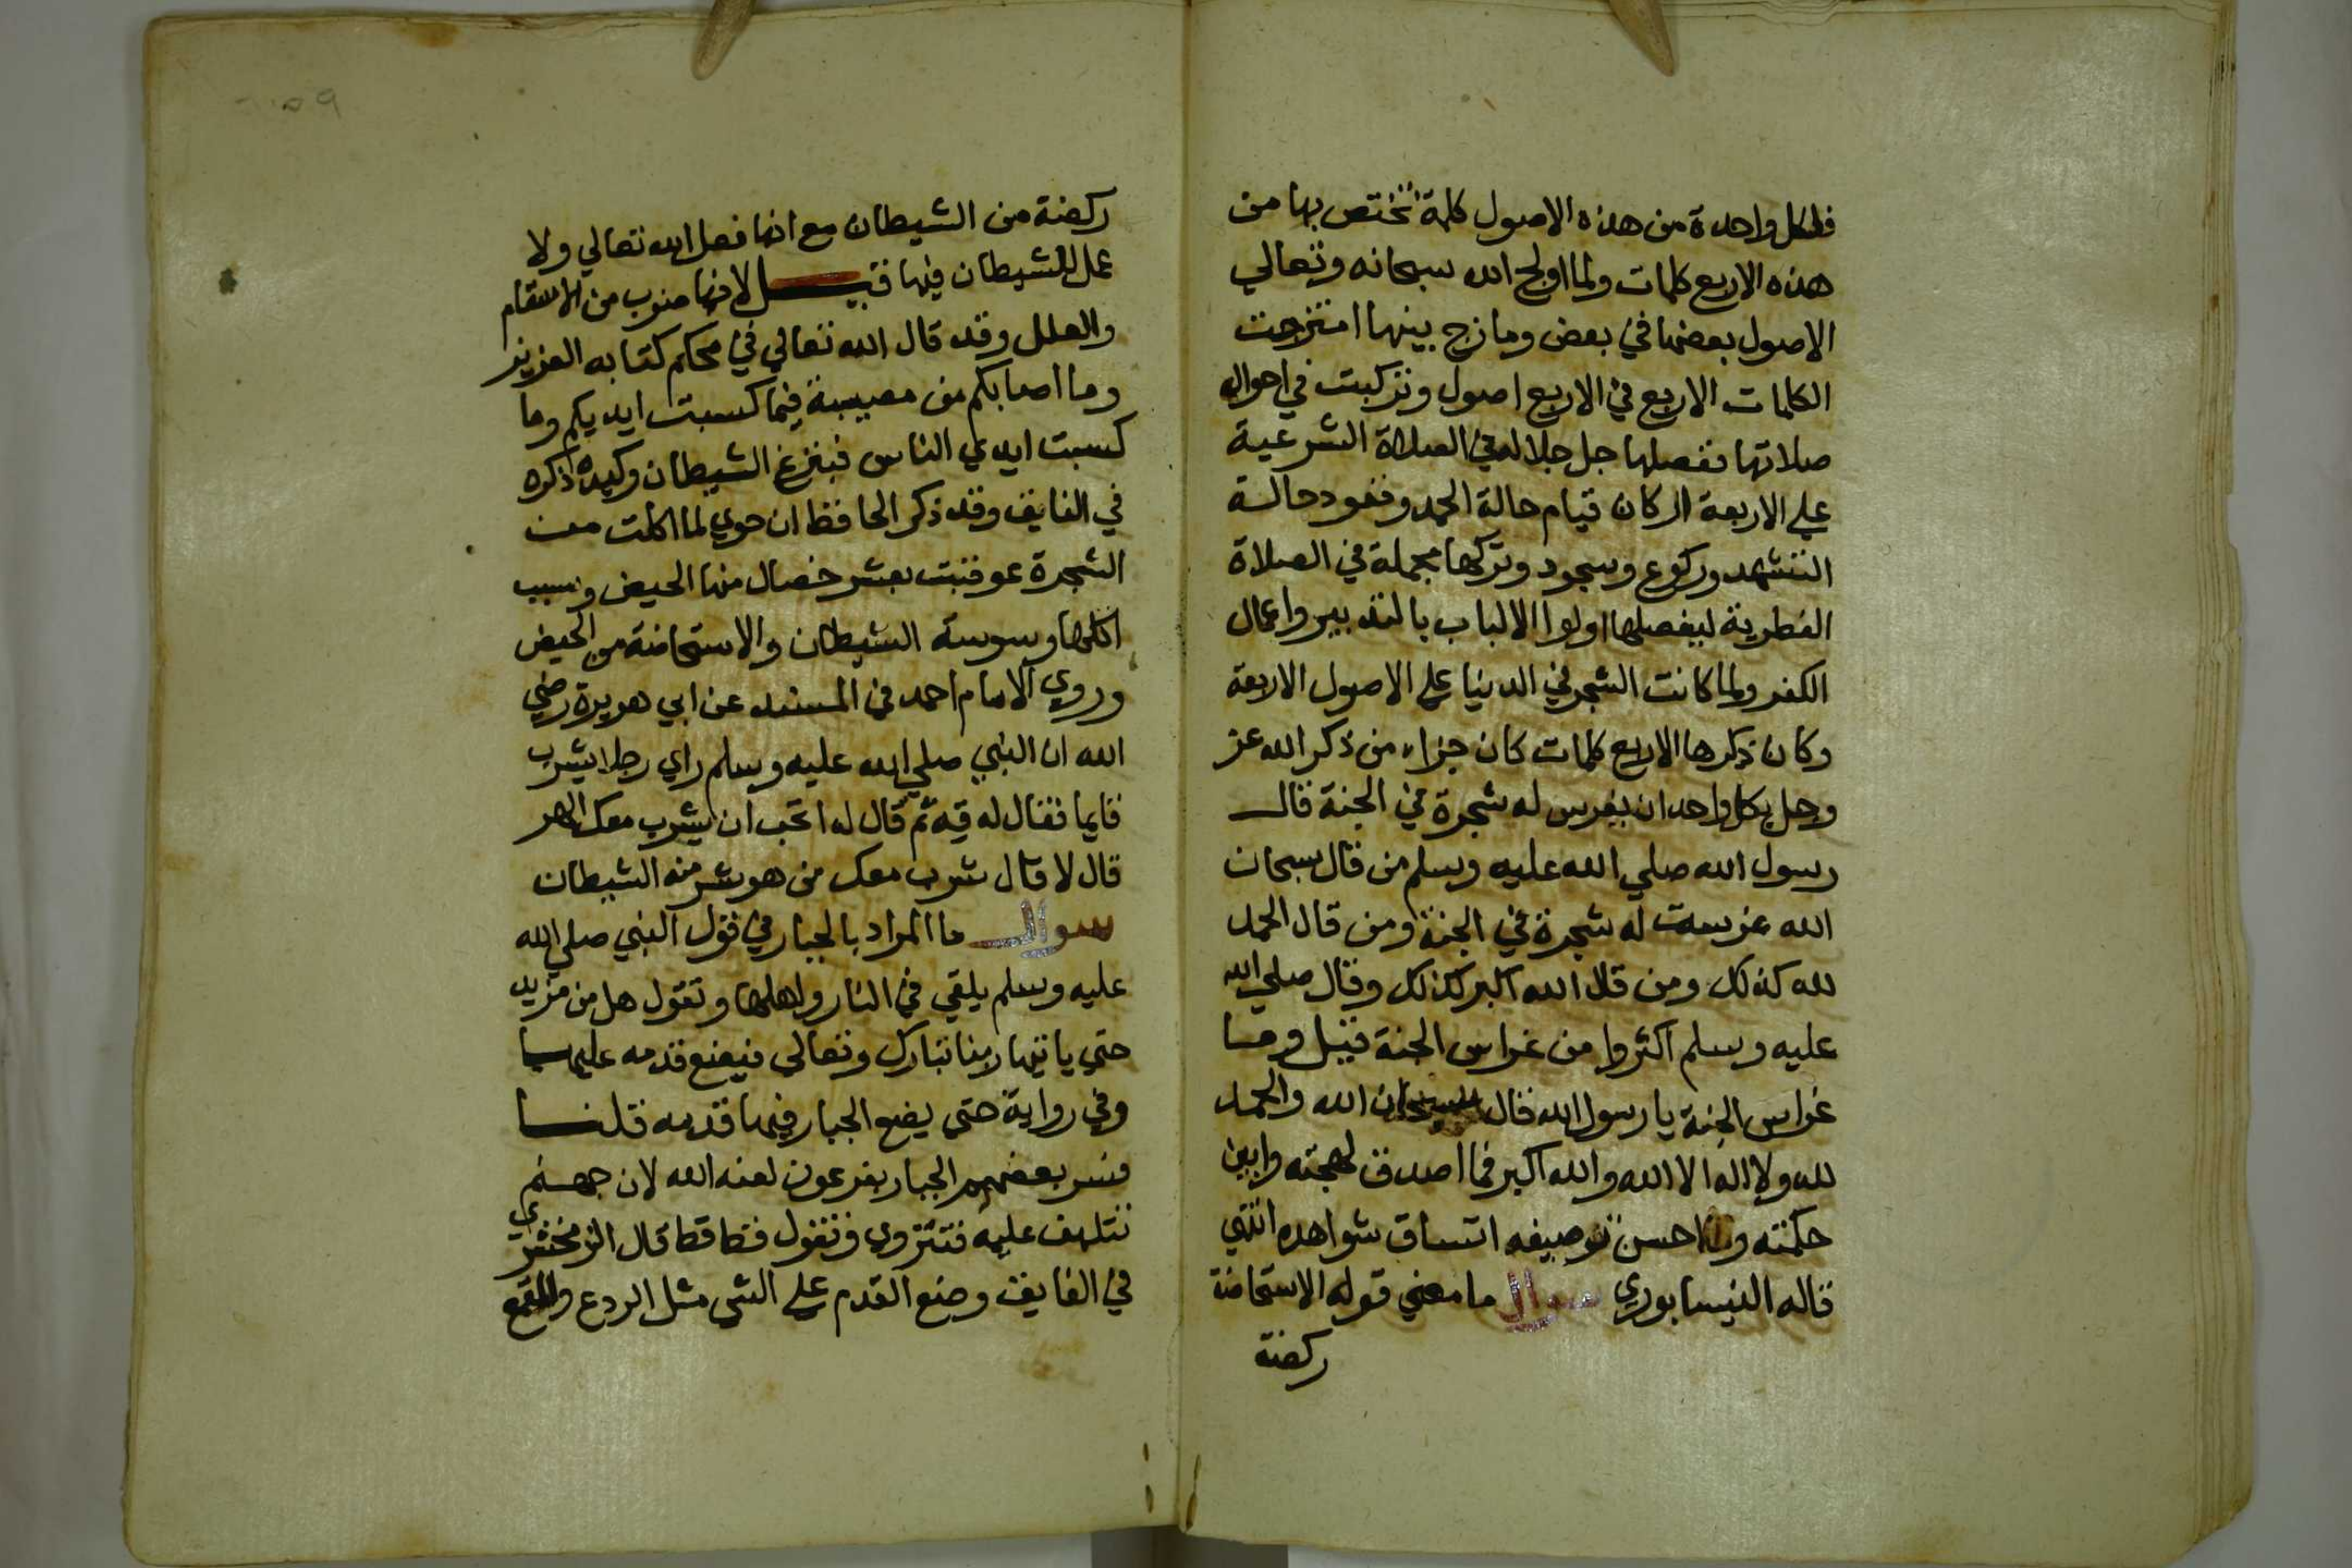 فلكل واحدة من هذه الاصول كلمة تختص بها من
هذه الاربع كلمات ولما اولج الله سبحانه وتعالي
الاصول بعضها في بعض ومازج بينها امتزجت
الكلمات الاربع في الاربع اصول وتركبت في احوال
صلاتها ففصلها جل جلاله في الصلاة الشرعية
علي الاربعة اركان قيام حالة الحمد وقعود حالة
التشهد وركوع وسجود وتركها مجملة في الصلاة
الفطرية ليفصلها اولوا الالباب بالتدبير واعمال
الكفر ولما كانت الشجر في الدنيا علي الاصول الاربعة
وكان ذكرها الاربع كلمات كان جزاء من ذكر الله عز
وجل بكل واحد ان يغرس له شجرة في الجنة قال
رسول الله صلي الله عليه وسلم من قال سبحان
الله غرست له شجرة في الجنة ومن قال الحمد
لله كذلك ومن قال الله اكبر كذلك وقال صلي الله
عليه وسلم اكثروا من غراس الجنة قيل وما
غراس الجنة يا رسول الله قال سبحان الله والحمد
لله ولا اله الا الله والله اكبر فما اصدق لهجته وابين
حكمته واحسن توصيفه اتساق شواهده انتهي
قاله النيسابوري سوال ما معني قوله الاستحاضة
ركضة
ركضة من الشيطان مع انها فعل الله تعالي ولا
عمل للشيطان فيها قيل لانها ضوب من الاسقام
والعلل وقد قال الله تعالي في محكم كتابه العزيز
وما اصابكم من مصيبة فيما كسبت ايديكم وما
كسبت ايدي الناس فبنزغ الشيطان وكيده ذكره
في الفايق وقد ذكر الحافظ ان حوي لما اكلت من
الشجرة عوقبت بعشر خصال منها الحيض وسبب
اكلها وسوسة الشيطان والاستحاضة من الحيض
وروي الامام احمد في المسند عن ابي هريرة رضي
الله ان النبي صلي الله عليه وسلم راي رجلا يشرب
قايما فقال له قه ثم قال له اتحب ان يشرب معك الهر
قال لا قال شرب معك من هو شر منه الشيطان
سوال ما المراد بالجبار في قول النبي صلي الله
عليه وسلم يلقي في النار واهلها وتقول هل من مزيد
حتي ياتيها ربنا تبارك وتعالي فيضع قدمه عليها
وفي رواية حتي يضع الجبار فيها قدمه قلنا
فسر بعضهم الجبار بفرعون لعنه الله لان جهنم
تتلهف عليه فتنزوي وتقول قط قط قال الزمخشري
في الفايق وضع القدم علي الشي مثل الردع والقمع